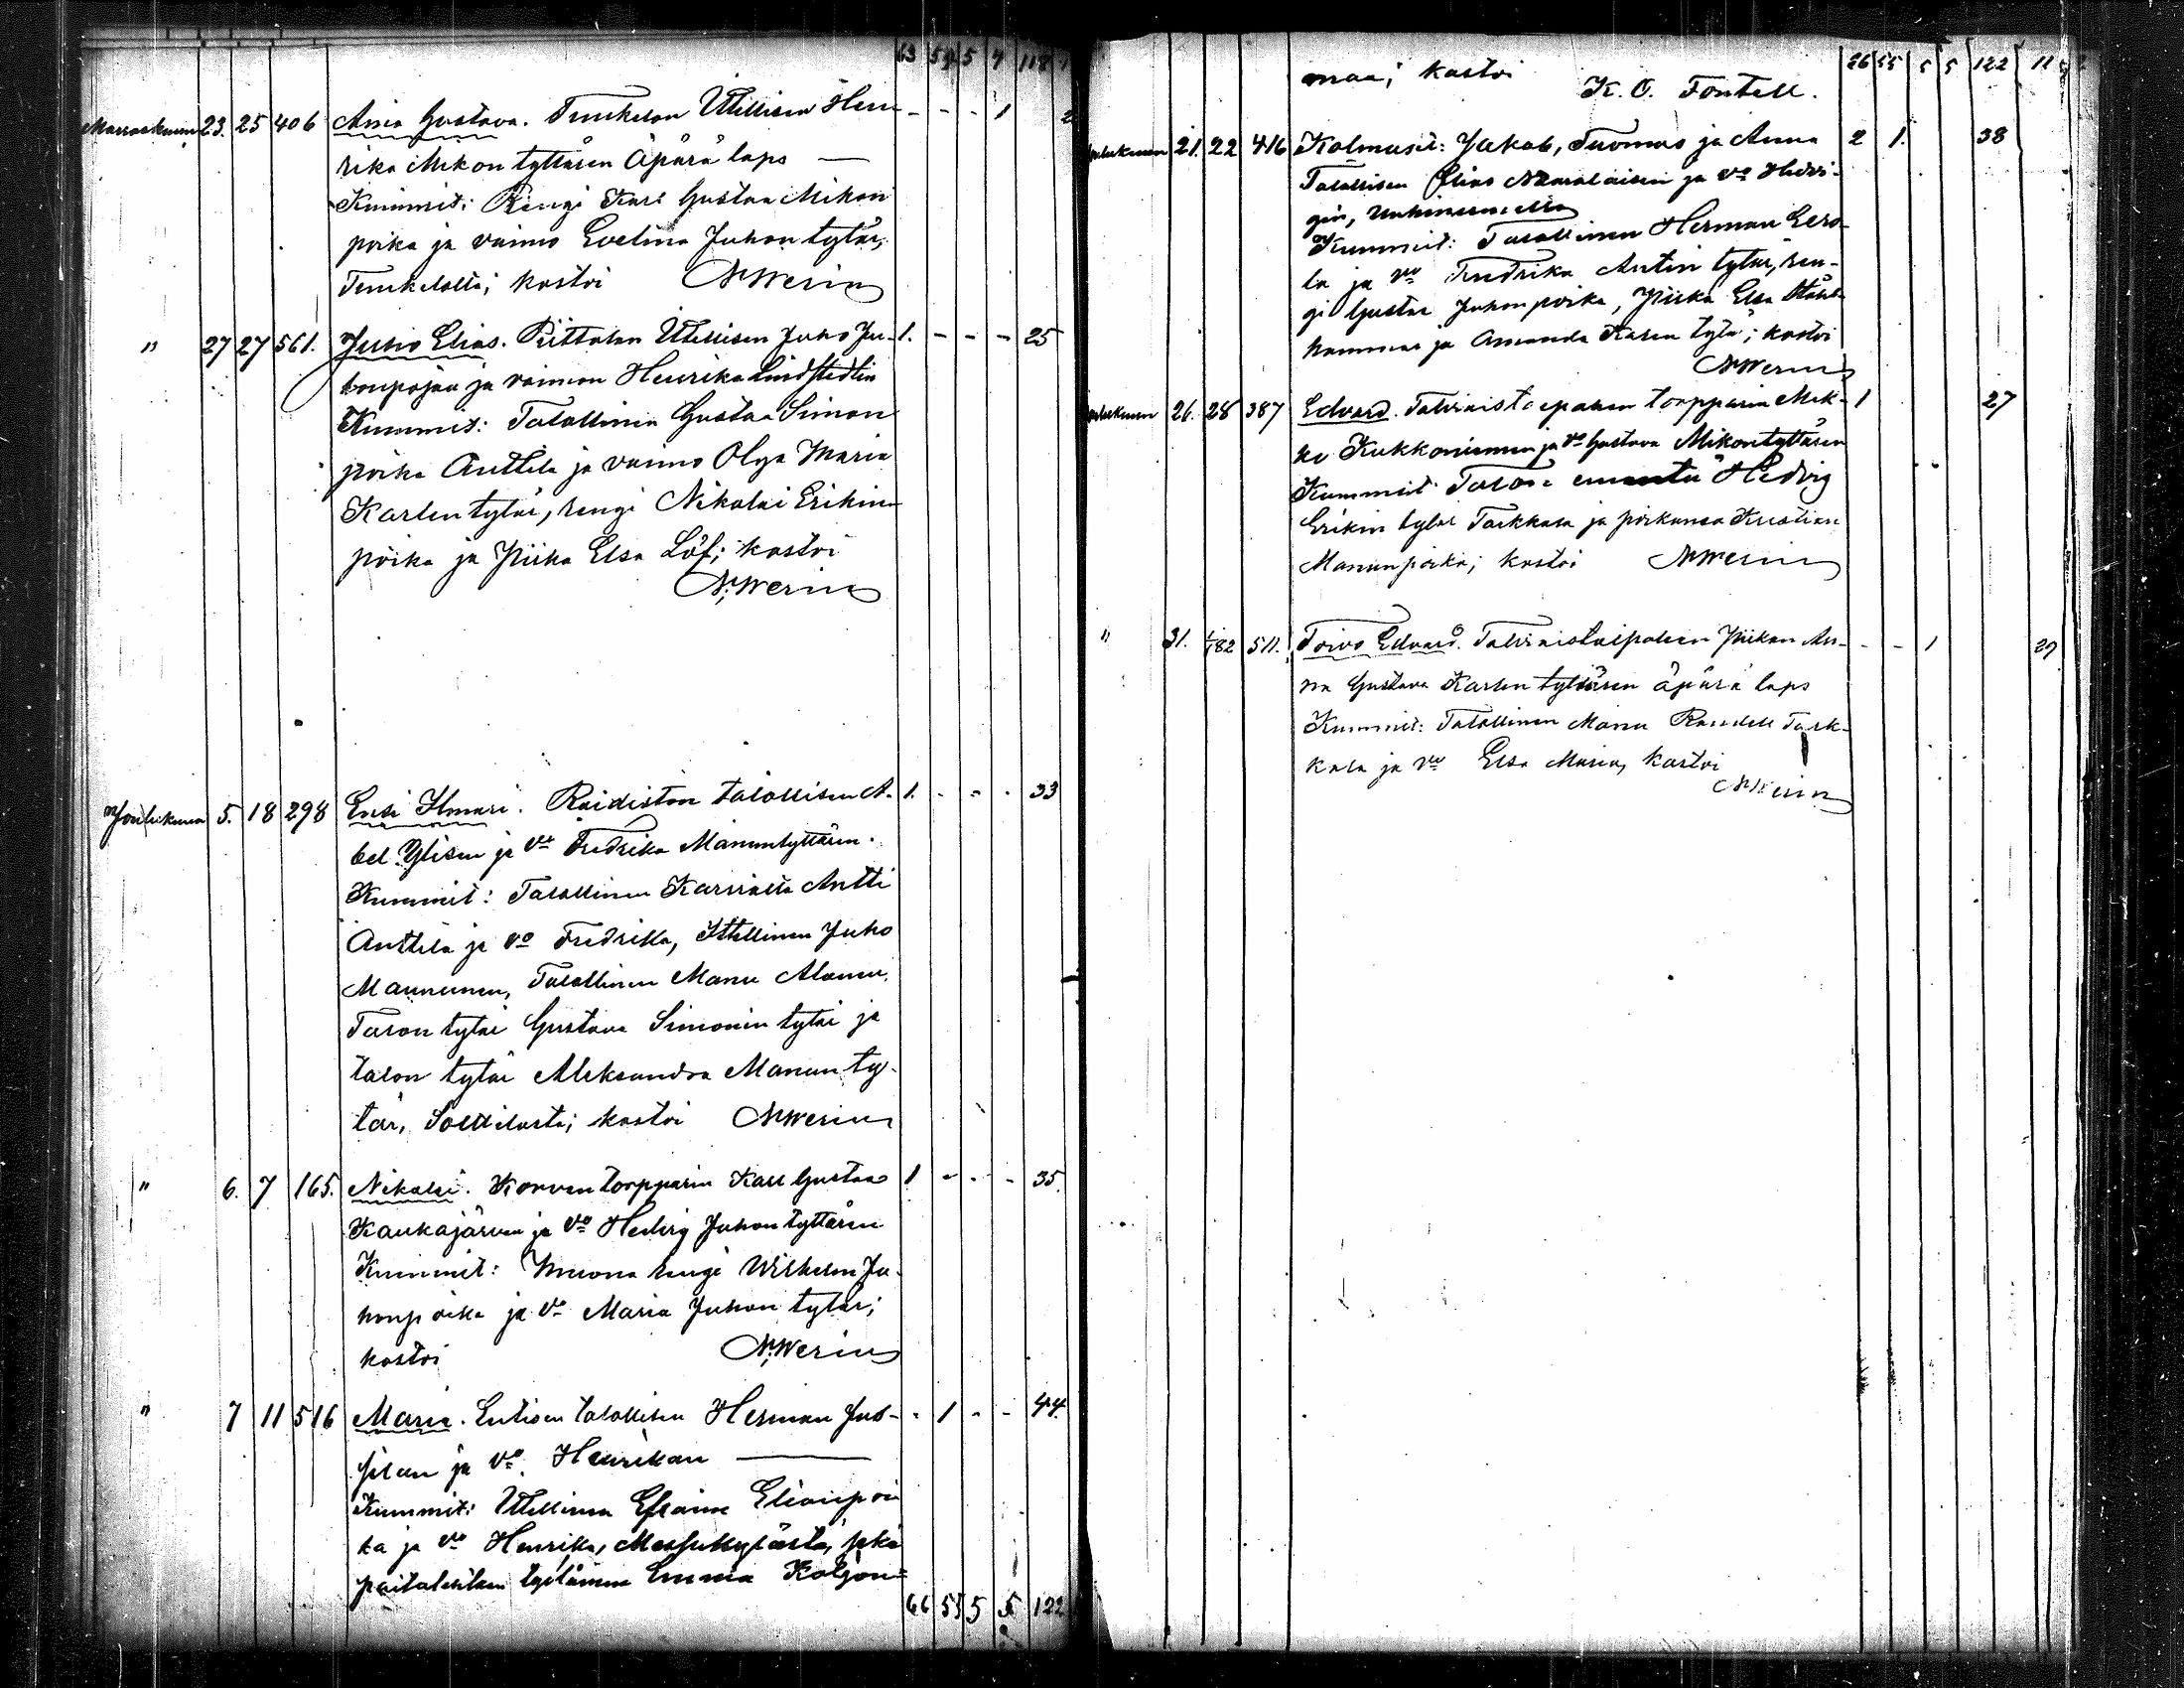 63 54 5 4 118
Marraskuun 23. 25 406 Aina Gustava. Itsellisen Hen- - - - 1
rika Mikon tyttären äpärä laps —
Kummit: Rengi Karl Gustaa Mikon
poika ja vaimo Evelina Juhon tytär,
kastoi NWerin
" 27 27 561. Juho Elias. Itsellisen Juho Ju- 1. - - - 25
honpojan ja vaimon Henrika Lindstedtin
Kummit: Talollinen Gustaa Simon
poika Anttila ja vaimo Olga Maria
Karlen tytär, rengi Nikolai Erikin
poika ja Piika Elsa Löf; kastoi
N.Werin
Joulukuun 5. 18 298 Ensi Ilmari. Raidiston talollisen A- 1. - - - 33
bel Ylisen ja vo Fredrika Manuntyttären.
Kummit: Talollinen Antti
Anttila ja vo Fredrika, Itsellinen Juho
Maununen, Talollinen Manu Alanen,
Talon tytär Gustava Simonin tytär ja
talon tytär Aleksandra Manun ty-
tär, Sottilasta; kastoi NWerin
" 6. 7 165. Nikolai. Korven torpparin Karl Gustaa 1 - - - 35.
Kaukajärven ja vo Hedvig Juhon tyttären
Kummit: Muona rengi Wilhelm Ju-
honpoika ja vo Maria Juhon tytär;
kastoi N.Werin
" 7 11 516 Maria. talollisen Herman Jus- - 1 - - 44.
silan ja vo. Henrikan —
Kummit: Itsellinen Efraim Elianpoi
ka ja vo Henrika, Messukylästä, sekä
tyttärensä Emma Koljon=
66 55 5 5 122
maa; kastoi 66 55 5 5 122 11
K. O. Fontell.
Joulukuun 21. 22 416 Kolmuset: Jakob, Tuomas ja Anna 2 1. 38
Talollisen Elias ja vo Hedvi-
gin,
Kummit: Talollinen Herman Eero-
la ja vo Fredrika Antin tytär, ren-
gi Gustaa Juhonpoika, Piika Elsa
ja Amanda Karen tytär; kastoi
NWerin
Joulukuun 26. 28 387 Edvard. torpparin Mik- 1 27
ko Kukkoniemen ja vo Gustava Mikontyttären
Kummit: Talon emäntä Hedvig
Erikin tytär Tarkkala ja poikansa Kristian
Manunpoika; kastoi NWerin
" 31. 1/1 82 511. Toivo Edvard. Talvraistaipaleen Piikan An- - - 1 29
na Gustava Karlen tyttären äpärä laps
Kummit: Talollinen Manu Randell Tark-
kala ja vo Elsa Maria, kastoi
NWerin